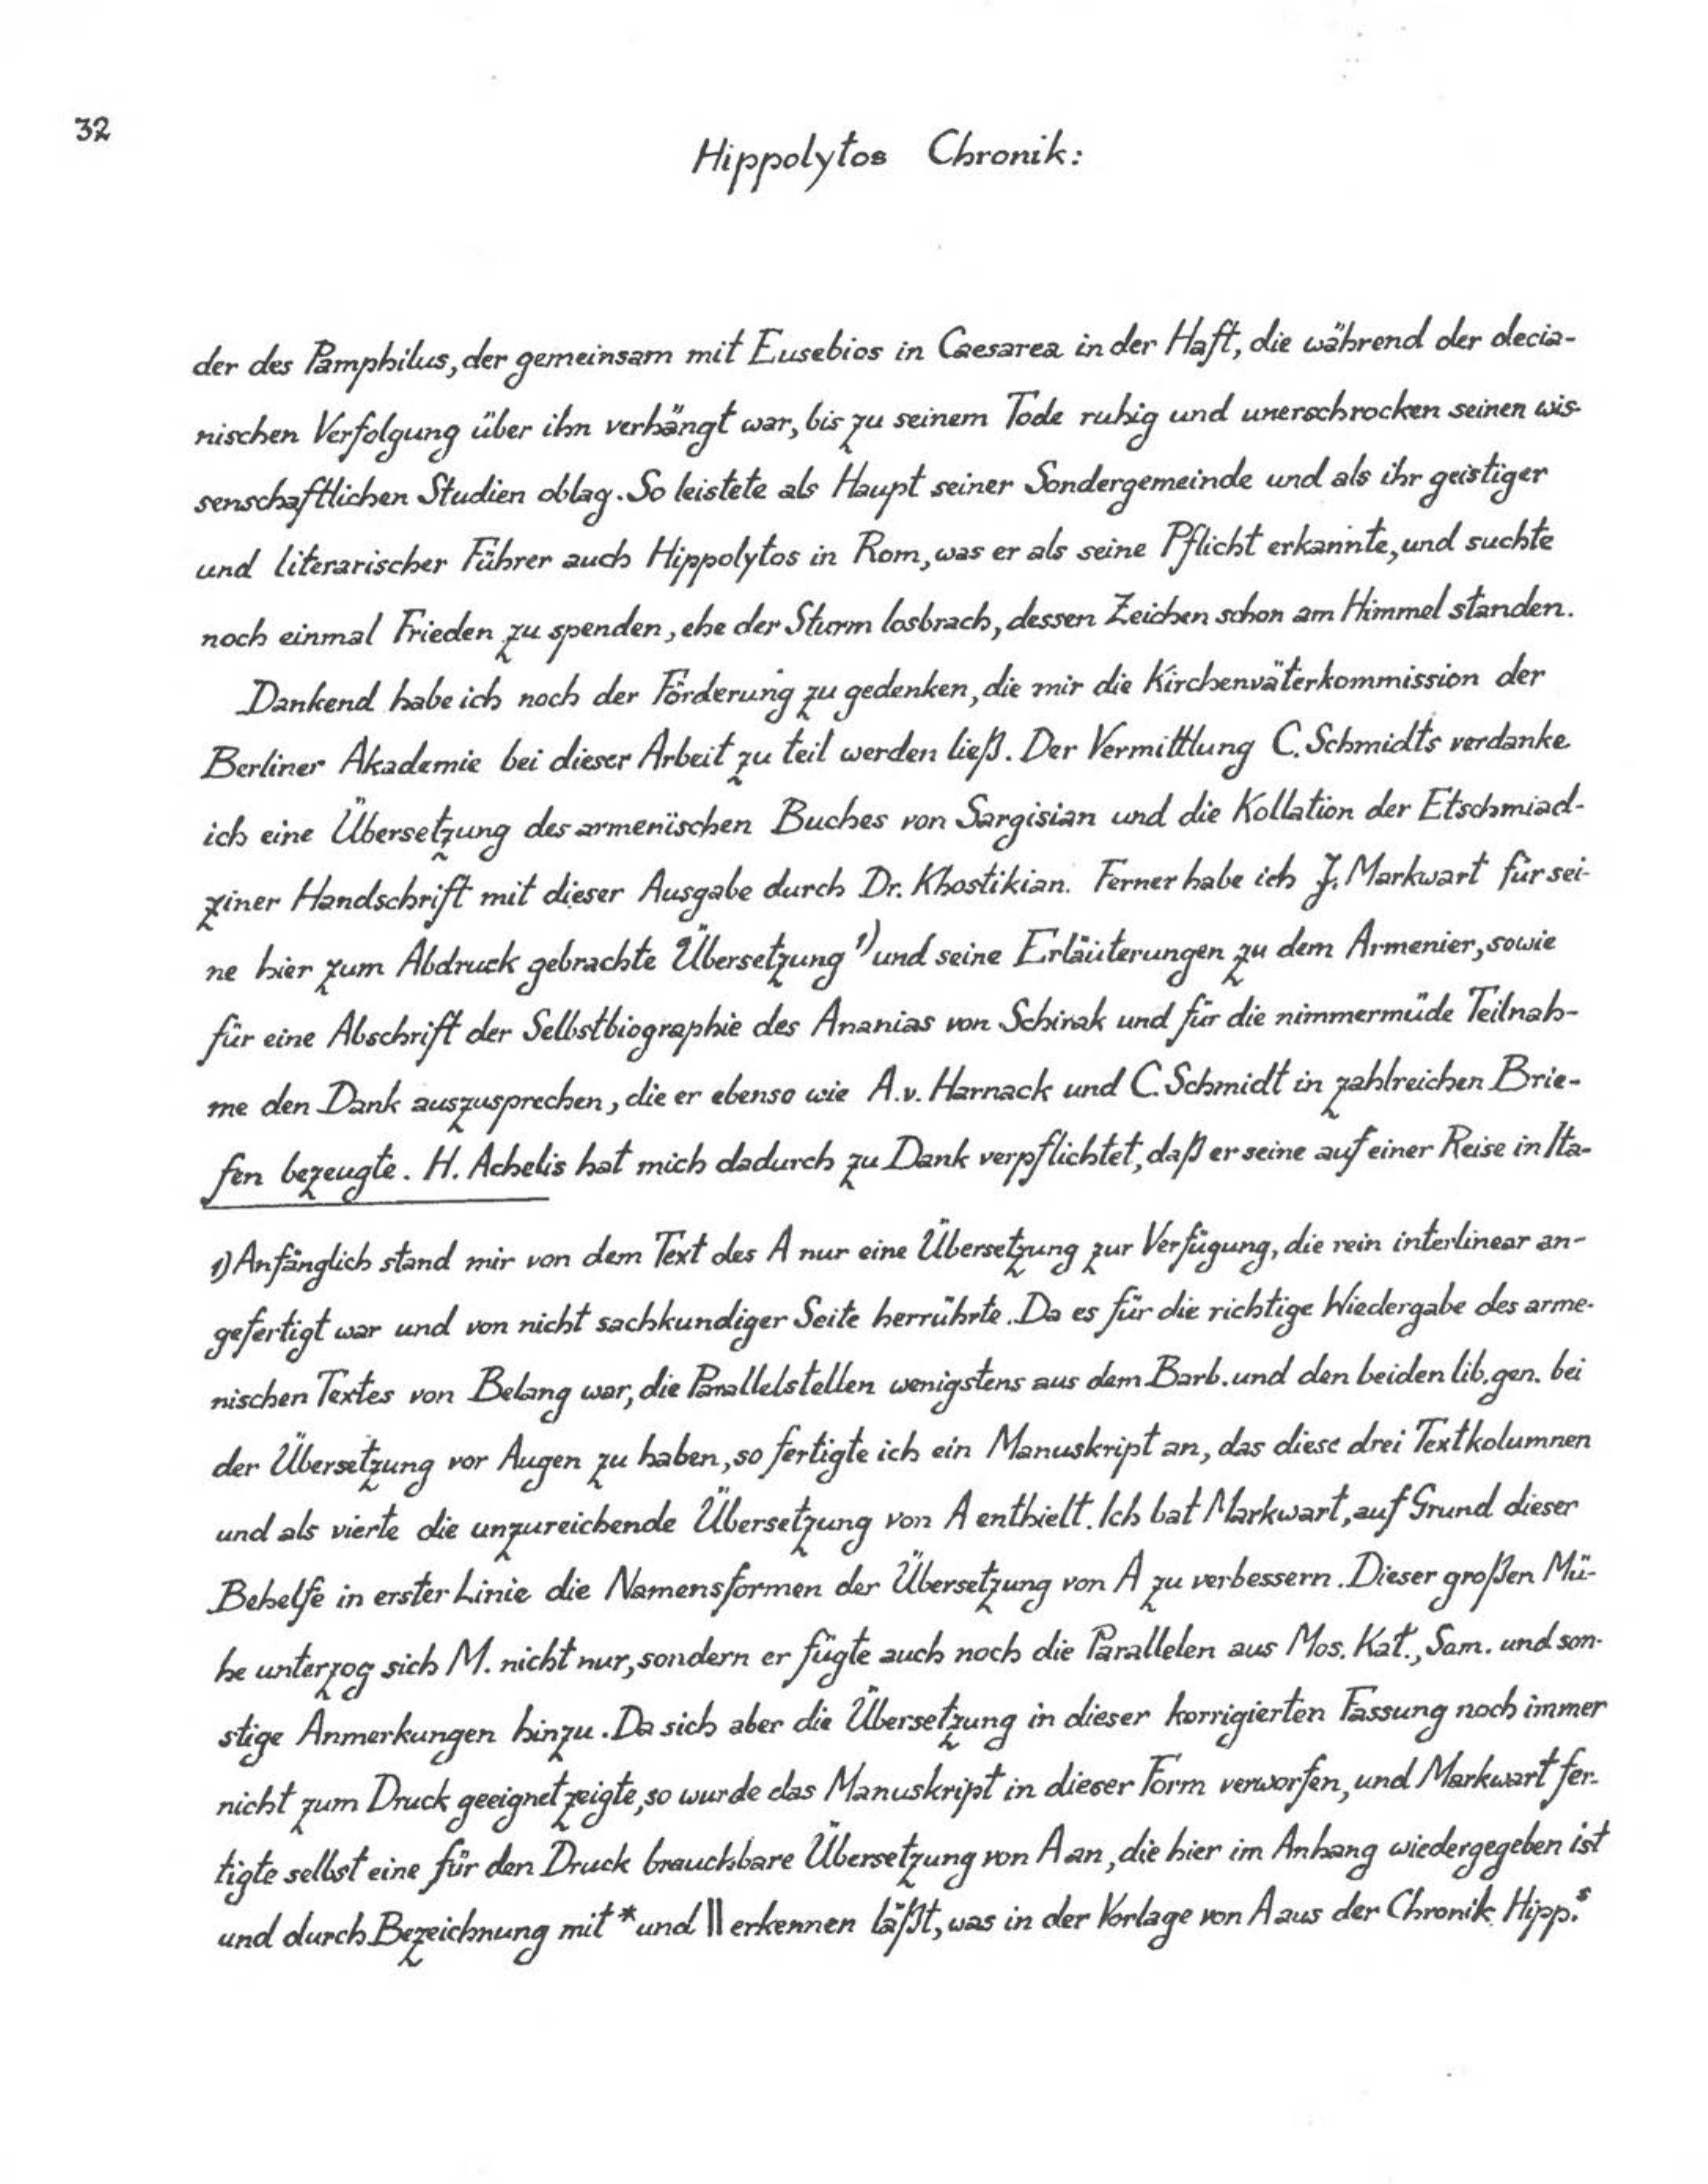 32
Hippolytos Chronik:
der des Pamphilus, der gemeinsam mit Eusebios in Caesarea in der Haft, die während der decia-
nischen Verfolgung über ihn verhängt war, bis zu seinem Tode ruhig und unerschrocken seinen wis-
senschaftlichen Studien oblag. So leistete als Haupt seiner Sondergemeinde und als ihr geistiger
und literarischer Führer auch Hippolytos in Rom, was er als seine Pflicht erkannte, und suchte
noch einmal Frieden zu spenden, ehe der Sturm losbrach, dessen Zeichen schon am Himmel standen.
Dankend habe ich noch der Förderung zu gedenken, die mir die Kirchenväterkommission der
Berliner Akademie bei dieser Arbeit zu teil werden ließ. Der Vermittlung C. Schmidts verdanke
ich eine Übersetzung des armenischen Buches von Sargisian und die Kollation der Etschmiad-
ziner Handschrift mit dieser Ausgabe durch Dr. Khostikian. Ferner habe ich J. Markwart für sei-
ne hier zum Abdruck gebrachte Übersetzung 1) und seine Erläuterungen zu dem Armenier, sowie
für eine Abschrift der Selbstbiographie des Ananias von Schirak und für die nimmermüde Teilnah-
me den Dank auszusprechen, die er ebenso wie A. v. Harnack und C. Schmidt in zahlreichen Brie-
fen bezeugte. H. Achelis hat mich dadurch zu Dank verpflichtet, daß er seine auf einer Reise in Ita-
1) Anfänglich stand mir von dem Text des A nur eine Übersetzung zur Verfügung, die rein interlinear an-
gefertigt war und von nicht sachkundiger Seite herrührte. Da es für die richtige Wiedergabe des arme-
nischen Textes von Belang war, die Parallelstellen wenigstens aus dem Barb. und den beiden lib. gen. bei
der Übersetzung vor Augen zu haben, so fertigte ich ein Manuskript an, das diese drei Textkolumnen
und als vierte die unzureichende Übersetzung von A enthielt. Ich bat Markwart, auf Grund dieser
Behelfe in erster Linie die Namensformen der Übersetzung von A zu verbessern. Dieser großen Mü-
he unterzog sich M. nicht nur, sondern er fügte auch noch die Parallelen aus Mos. Kat., Sam. und son-
stige Anmerkungen hinzu. Da sich aber die Übersetzung in dieser korrigierten Fassung noch immer
nicht zum Druck geeignet zeigte, so wurde das Manuskript in dieser Form verworfen, und Markwart fer-
tigte selbst eine für den Druck brauchbare Übersetzung von A an, die hier im Anhang wiedergegeben ist
und durch Bezeichnung mit * und || erkennen läßt, was in der Vorlage von A aus der Chronik Hipp.s